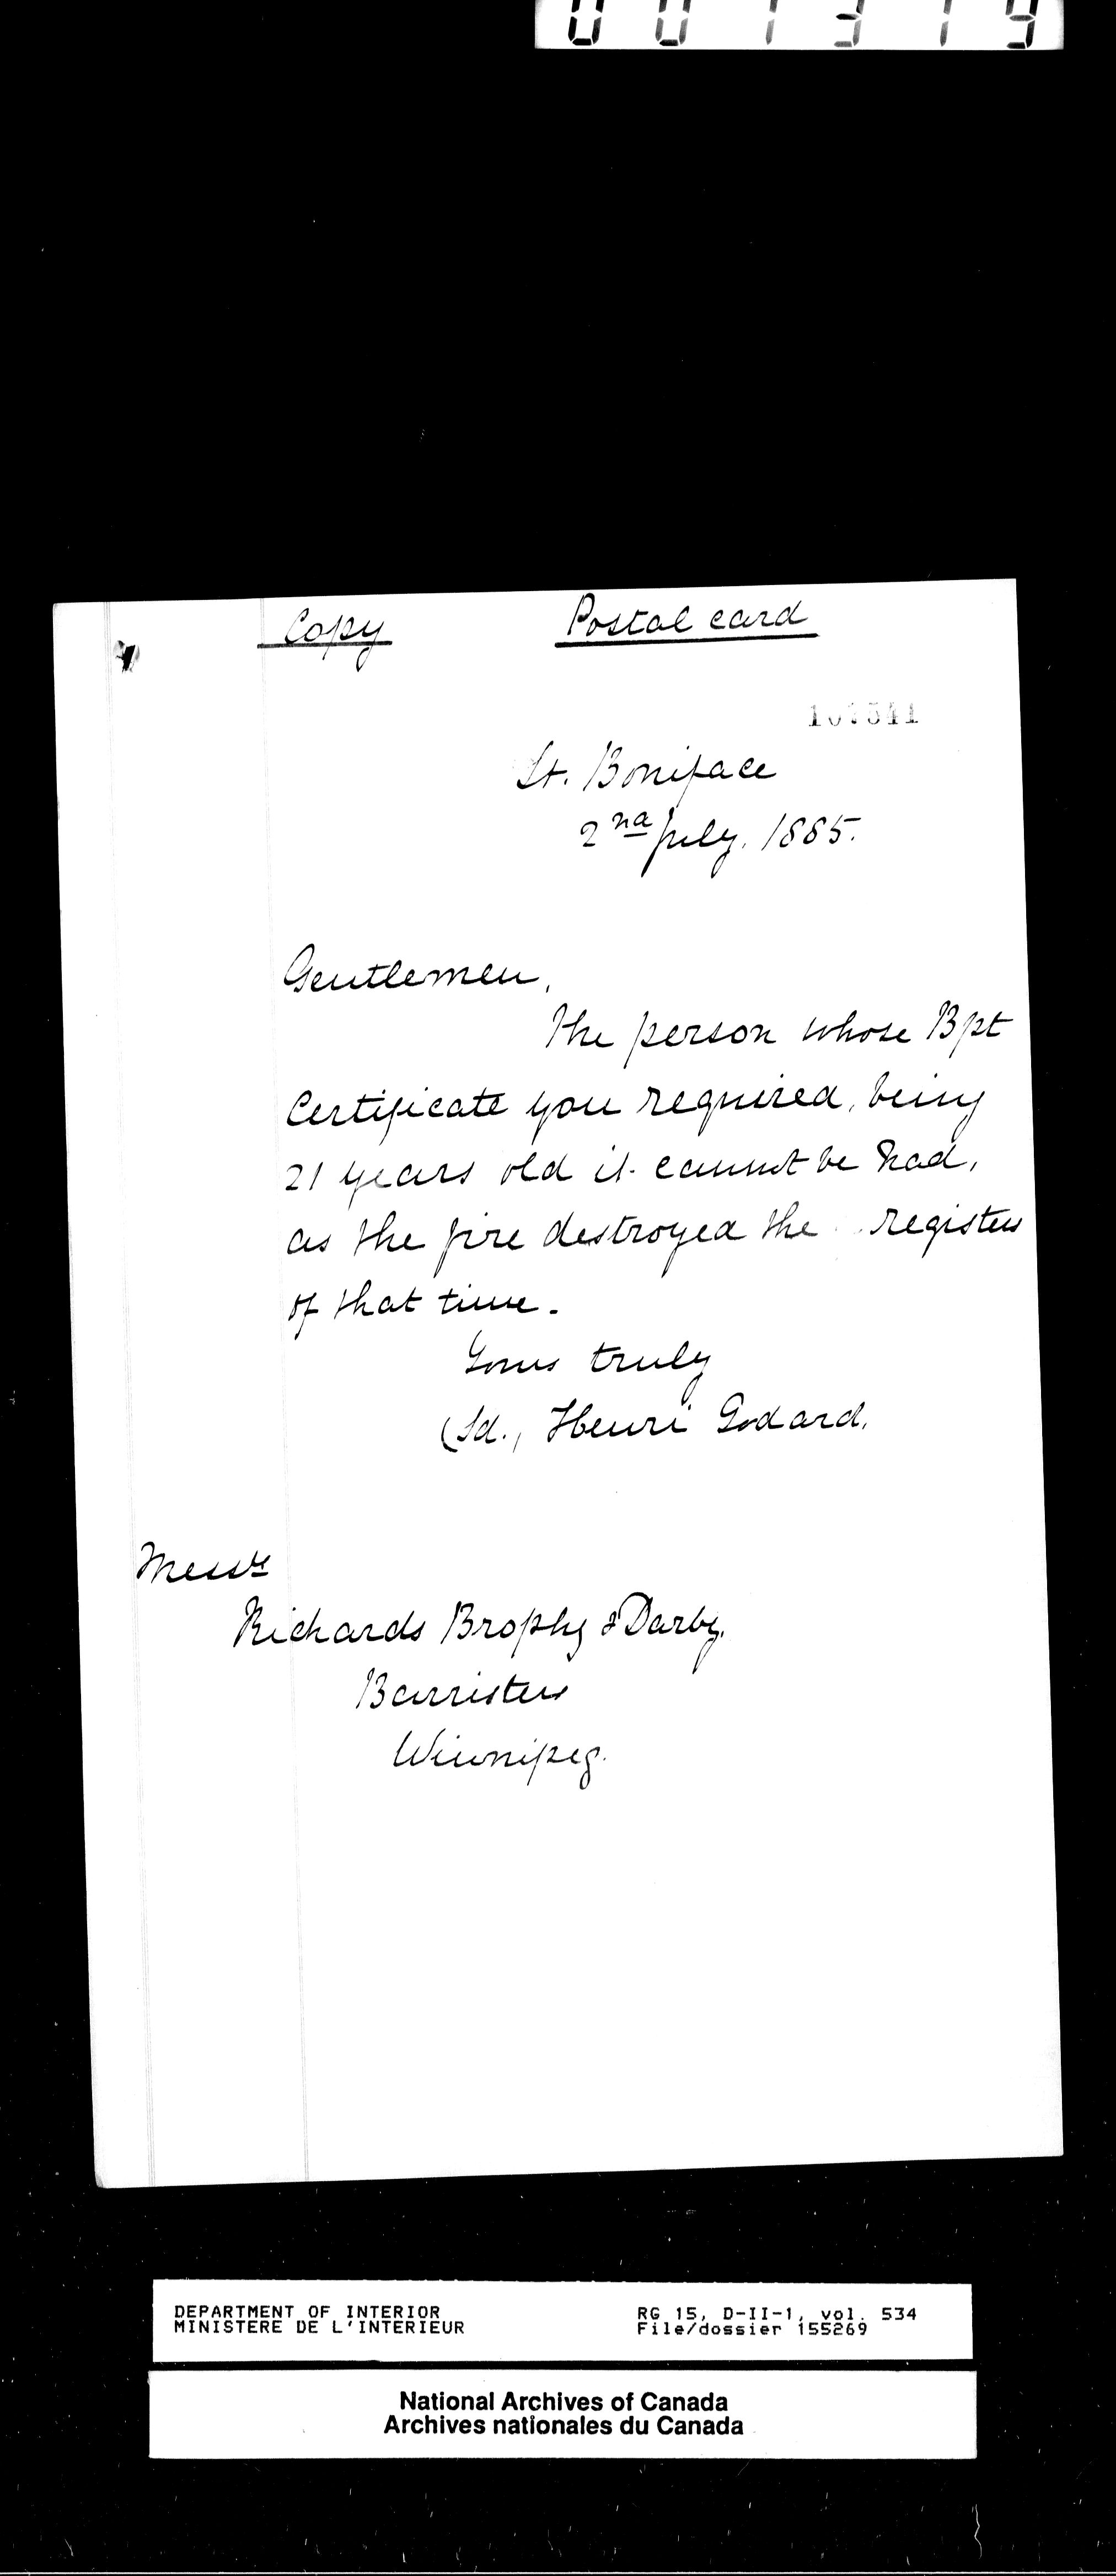 001319
Copy Postal card
St. Boniface
2nd July. 1885.
Gentlemen,
The person whose Bpt
Certificate you required, being
21 years old it cannot be had,
as the fire destroyed the registers
of that time.
Yours truly
(Sd., Henri Godard.
Messrs
Richards Brophy & Darby.
Barristers
Winnipeg.
DEPARTMENT OF INTERIOR RG 15, D-II-1, vol. 534
MINISTERE DE L'INTERIEUR File/dossier 155269
National Archives of Canada
Archives nationales du Canada